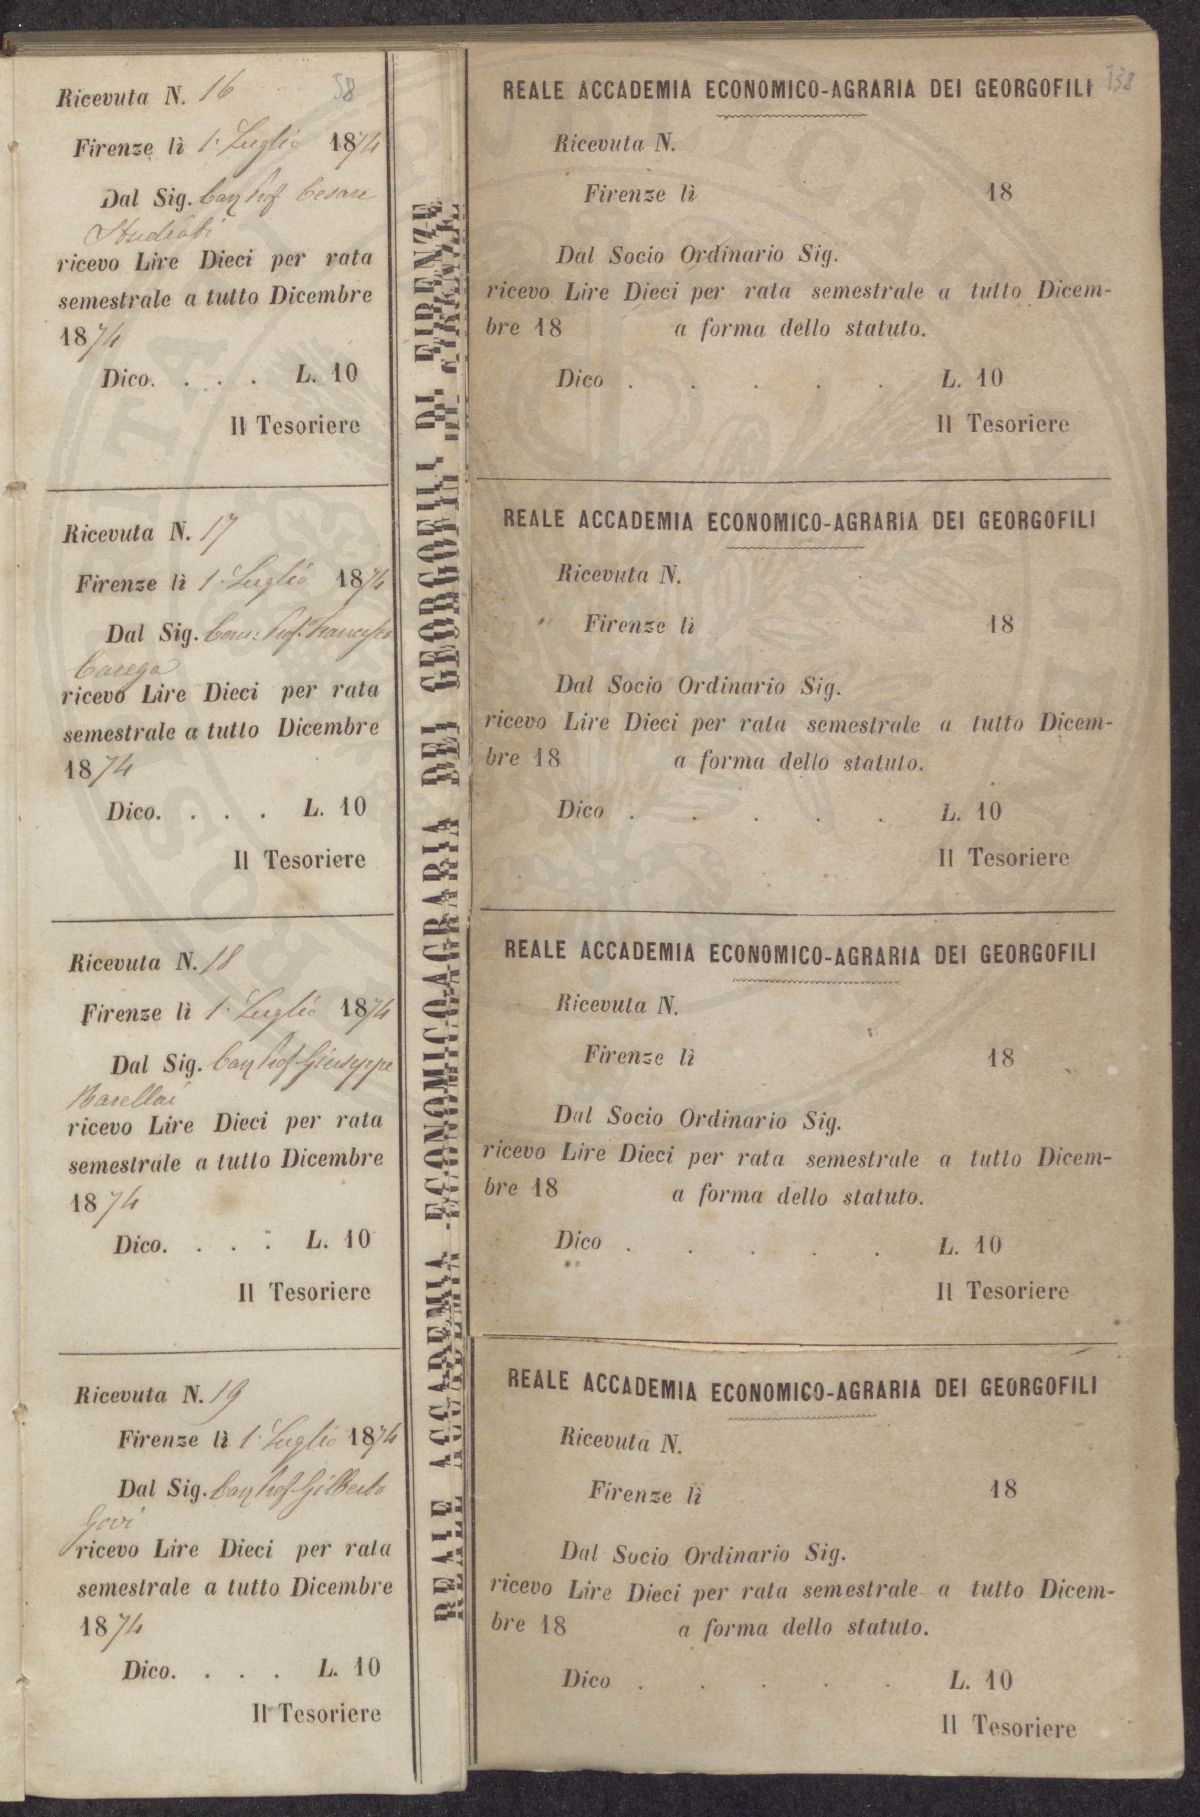 Ricevuta N. 16
58
Firenze lì 1. Luglio 1874
Dal Sig. Cav Prof Cesare
Studiati
ricevo Lire Dieci per rata
semestrale a tutto Dicembre
1874
Dico. . . . L. 10
Il Tesoriere
Ricevuta N. 17
Firenze lì 1. Luglio 1874
Dal Sig. Com: Prof. Francesco
Carega
ricevo Lire Dieci per rata
semestrale a tutto Dicembre
1874
Dico. . . . L. 10
Il Tesoriere
Ricevuta N. 18
Firenze lì 1. Luglio 1874
Dal Sig. Cav Prof Giuseppe
Barellai
ricevo Lire Dieci per rata
semestrale a tutto Dicembre
1874
Dico. . . . L. 10
Il Tesoriere
Ricevuta N. 19
Firenze lì 1. Luglio 1874
Dal Sig. Cav Prof Gilberto
Govi
ricevo Lire Dieci per rata
semestrale a tutto Dicembre
1874
Dico. . . . L. 10
Il Tesoriere
REALE ACCADEMIA ECONOMICOAGRARIA DEI GEORGOFILI DI FIRENZE
REALE ACCADEMIA ECONOMICO-AGRARIA DEI GEORGOFILI
Ricevuta N.
Firenze lì 18
Dal Socio Ordinario Sig.
ricevo Lire Dieci per rata semestrale a tutto Dicem-
bre 18 a forma dello statuto.
Dico . . . . . L. 10
Il Tesoriere
REALE ACCADEMIA ECONOMICO-AGRARIA DEI GEORGOFILI
Ricevuta N.
Firenze lì 18
Dal Socio Ordinario Sig.
ricevo Lire Dieci per rata semestrale a tutto Dicem-
bre 18 a forma dello statuto.
Dico . . . . . L. 10
Il Tesoriere
REALE ACCADEMIA ECONOMICO-AGRARIA DEI GEORGOFILI
Ricevuta N.
Firenze lì 18
Dal Socio Ordinario Sig.
ricevo Lire Dieci per rata semestrale a tutto Dicem-
bre 18 a forma dello statuto.
Dico . . . . . L. 10
Il Tesoriere
REALE ACCADEMIA ECONOMICO-AGRARIA DEI GEORGOFILI
Ricevuta N.
Firenze lì 18
Dal Socio Ordinario Sig.
ricevo Lire Dieci per rata semestrale a tutto Dicem-
bre 18 a forma dello statuto.
Dico . . . . . L. 10
Il Tesoriere